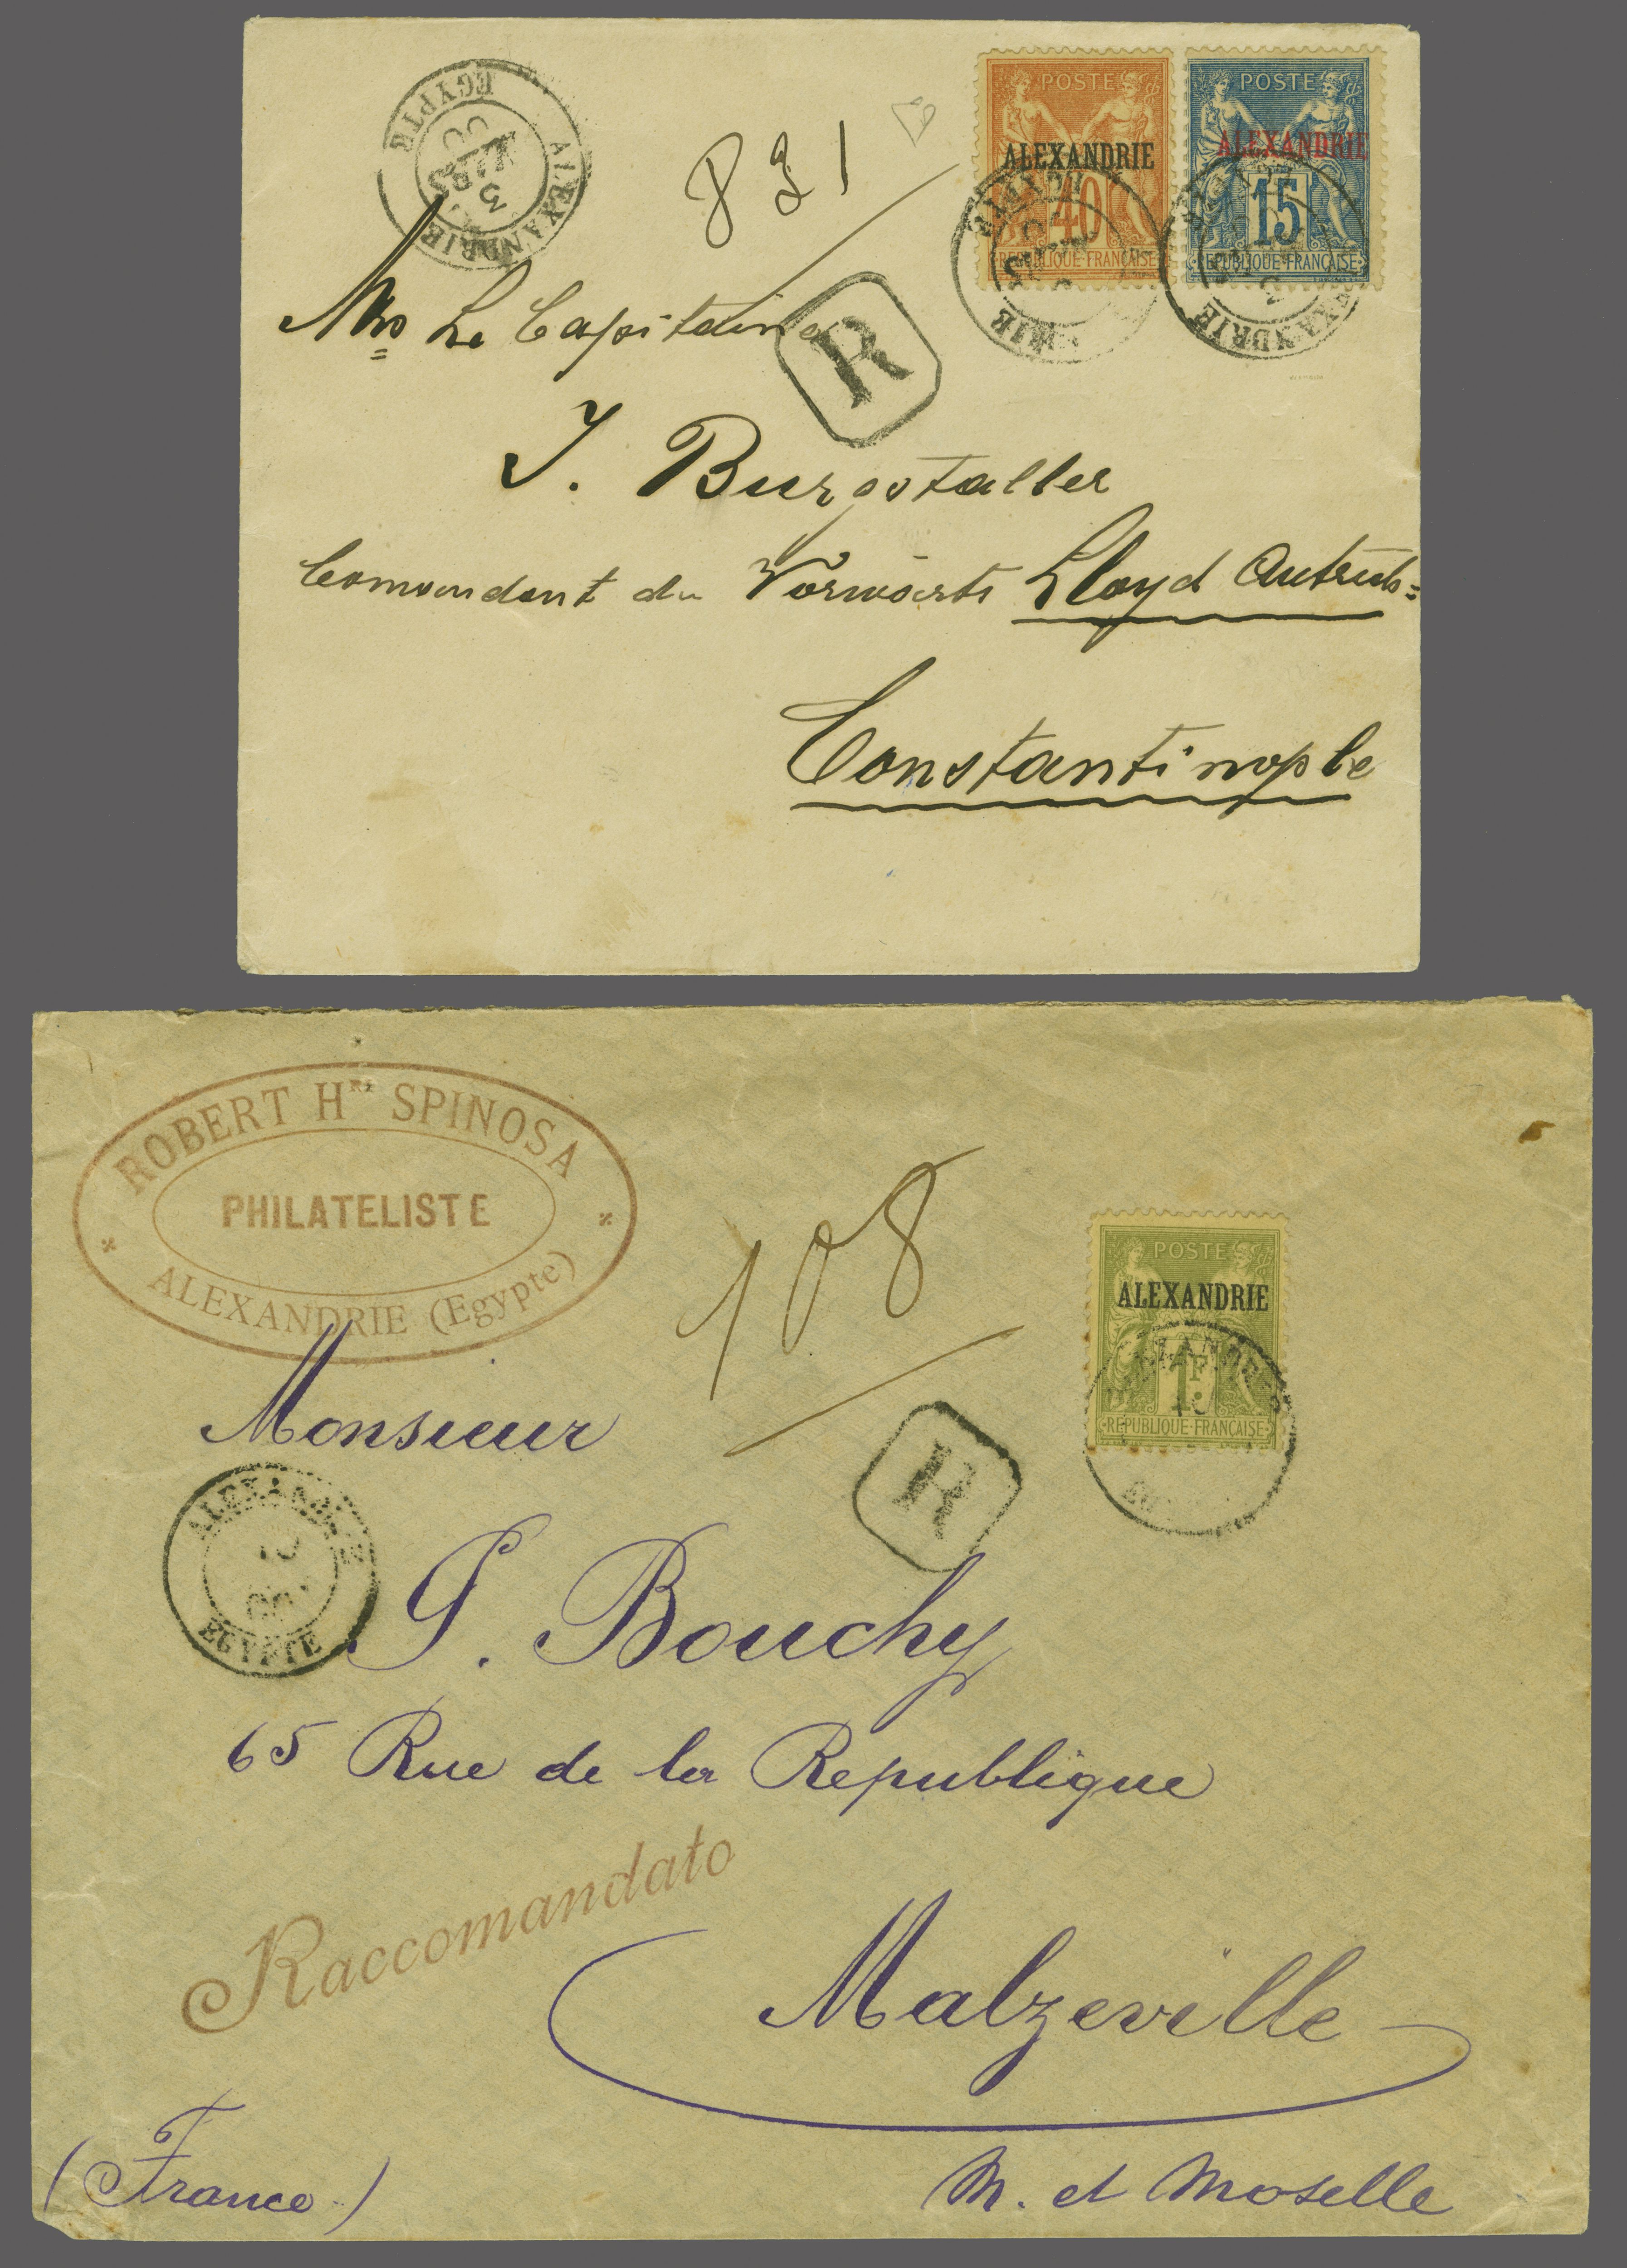 ALEXANDRIE
EGYPTE
3
MARS
00
821
POSTE
ALEXANDRIE
40
REPUBLIQUE FRANÇAISE
POSTE
ALEXANDRIE
15
REPUBLIQUE FRANÇAISE
ALEXANDRIE
R
Le Capitaine
J. Burgstaller
Comandant du Vorwärts Lloyd
Constantinople
ROBERT Hri SPINOSA
PHILATELISTE
ALEXANDRIE (Egypte)
108
POSTE
ALEXANDRIE
1F.
REPUBLIQUE FRANÇAISE
R
Monsieur
ALEXANDRIE
EGYPTE
G. Bouchy
65 Rue de la Republique
Raccomandato
Malzeville
(France)
M. et Moselle